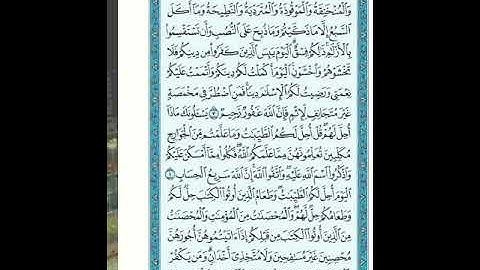 وَالْمُنْخَنِقَةُ وَالْمَوْقُوذَةُ وَالْمُتَرَدِّيَةُ وَالنَّطِيحَةُ وَمَا أَكَلَ
السَّبُعُ إِلَّا مَا ذَكَّيْتُمْ وَمَا ذُبِحَ عَلَى النُّصُبِ وَأَن تَسْتَقْسِمُوا
بِالْأَزْلَٰمِ ذَٰلِكُمْ فِسْقٌ الْيَوْمَ يَئِسَ الَّذِينَ كَفَرُوا مِن دِينِكُمْ فَلَا
تَخْشَوْهُمْ وَاخْشَوْنِ الْيَوْمَ أَكْمَلْتُ لَكُمْ دِينَكُمْ وَأَتْمَمْتُ عَلَيْكُمْ
نِعْمَتِي وَرَضِيتُ لَكُمُ الْإِسْلَٰمَ دِينًا فَمَنِ اضْطُرَّ فِي مَخْمَصَةٍ
غَيْرَ مُتَجَانِفٍ لِّإِثْمٍ فَإِنَّ اللَّهَ غَفُورٌ رَّحِيمٌ ٣ يَسْـَٔلُونَكَ مَاذَا
أُحِلَّ لَهُمْ قُلْ أُحِلَّ لَكُمُ الطَّيِّبَٰتُ وَمَا عَلَّمْتُم مِّنَ الْجَوَارِحِ
مُكَلِّبِينَ تُعَلِّمُونَهُنَّ مِمَّا عَلَّمَكُمُ اللَّهُ فَكُلُوا مِمَّا أَمْسَكْنَ عَلَيْكُمْ
وَاذْكُرُوا اسْمَ اللَّهِ عَلَيْهِ وَاتَّقُوا اللَّهَ إِنَّ اللَّهَ سَرِيعُ الْحِسَابِ ٤
الْيَوْمَ أُحِلَّ لَكُمُ الطَّيِّبَٰتُ وَطَعَامُ الَّذِينَ أُوتُوا الْكِتَٰبَ حِلٌّ لَّكُمْ
وَطَعَامُكُمْ حِلٌّ لَّهُمْ وَالْمُحْصَنَٰتُ مِنَ الْمُؤْمِنَٰتِ وَالْمُحْصَنَٰتُ
مِنَ الَّذِينَ أُوتُوا الْكِتَٰبَ مِن قَبْلِكُمْ إِذَا ءَاتَيْتُمُوهُنَّ أُجُورَهُنَّ
مُحْصِنِينَ غَيْرَ مُسَٰفِحِينَ وَلَا مُتَّخِذِي أَخْدَانٍ وَمَن يَكْفُرْ